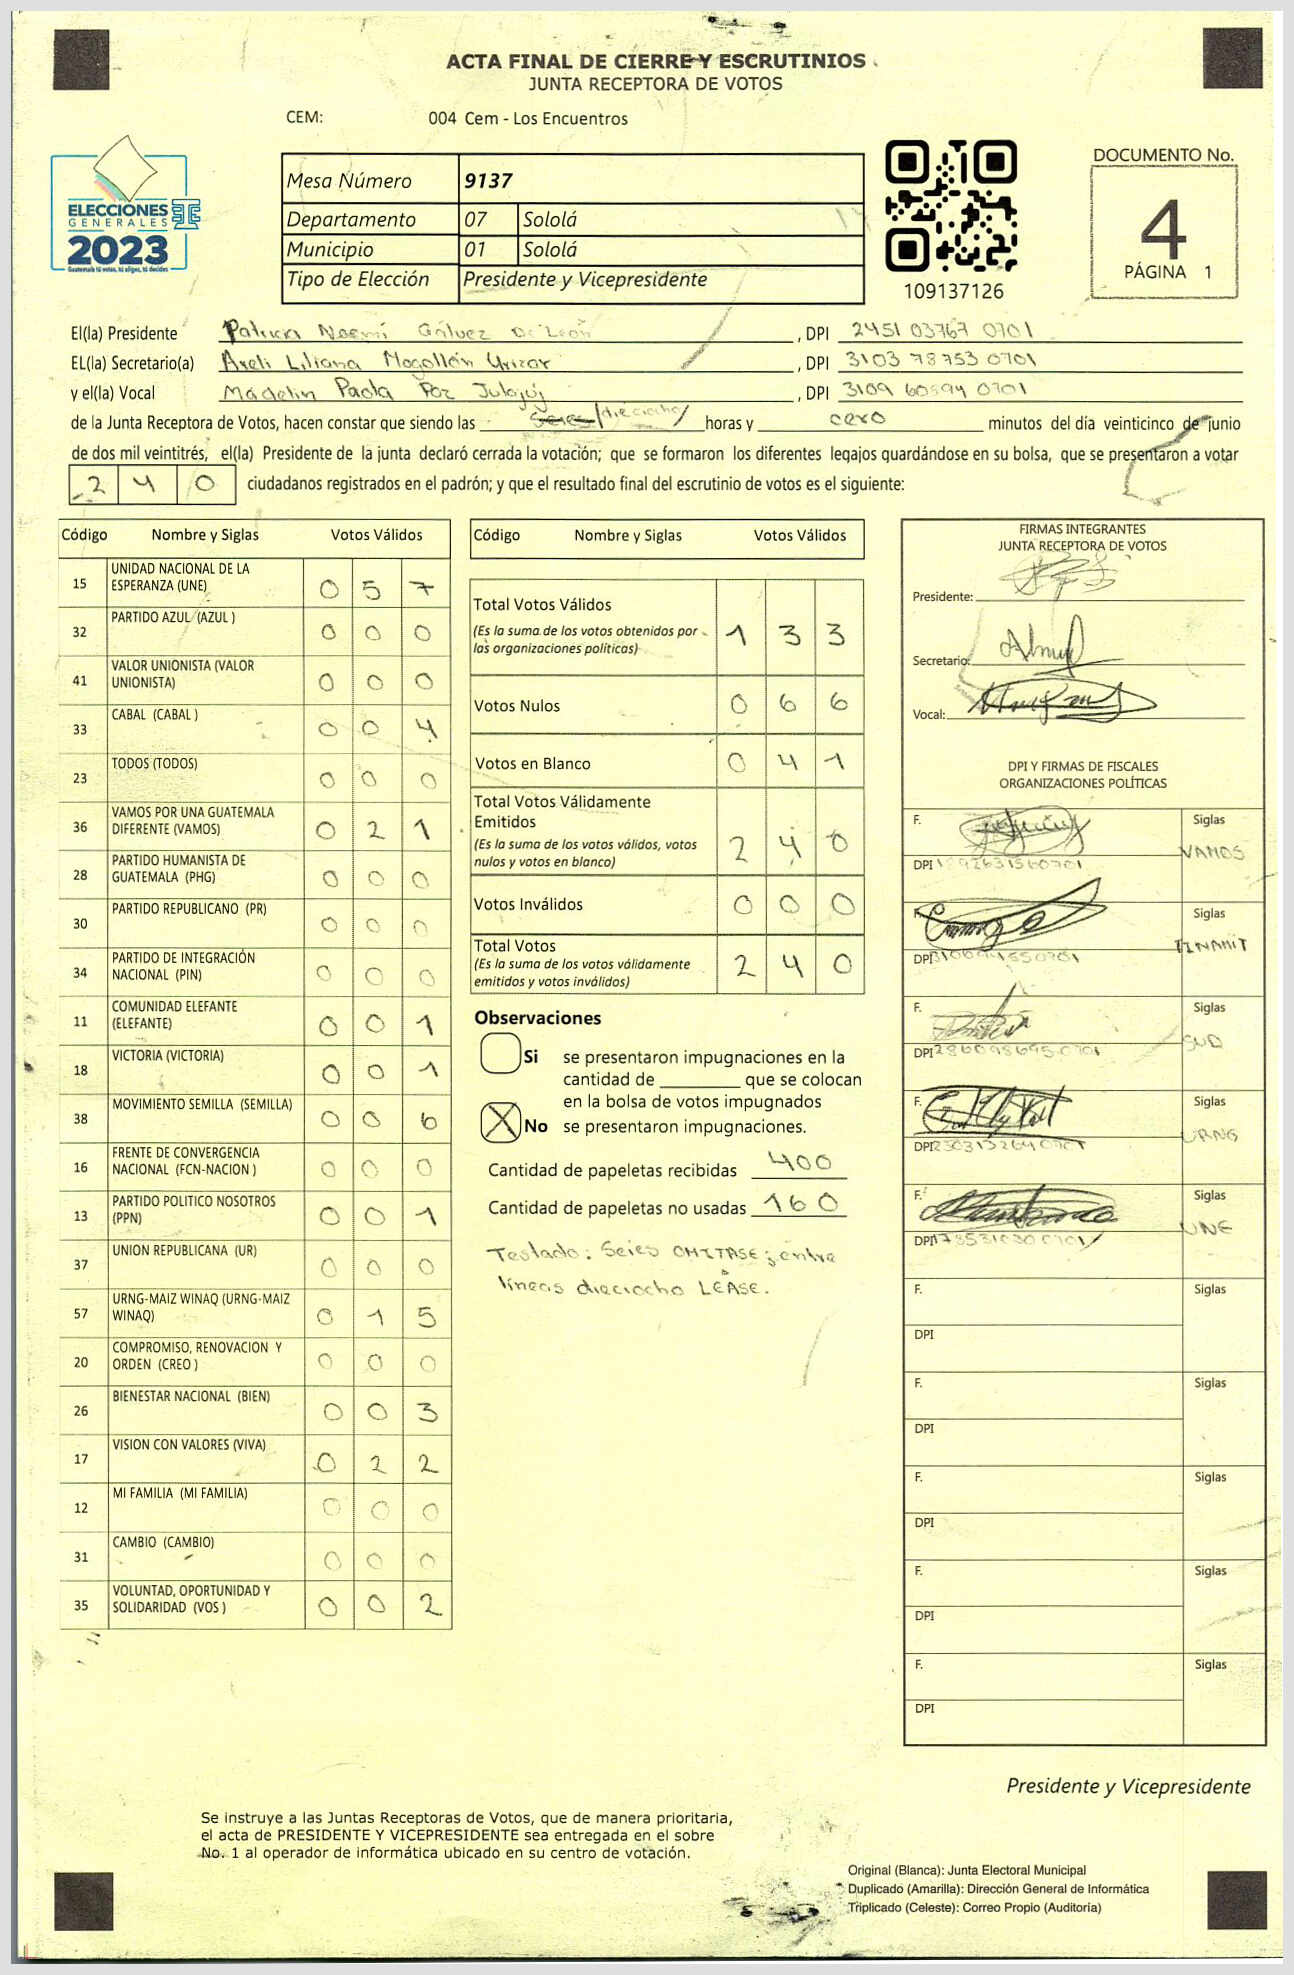 ACTA FINAL DE CIERRE Y ESCRUTINIOS
JUNTA RECEPTORA DE VOTOS
CEM: 004 Cem - Los Encuentros
ELECCIONES
GENERALES
2023
Guatemala tú votas, tú eliges, tú decides
Mesa Número 9137
Departamento 07 Sololá
Municipio 01 Sololá
Tipo de Elección Presidente y Vicepresidente
109137126
DOCUMENTO No.
4
PÁGINA 1
El(la) Presidente Patricia Noemí Gálvez De León, DPI 2451 03767 0701
EL(la) Secretario(a) Areli Liliana Mogollón Urizar, DPI 3103 78753 0701
y el(la) Vocal Madelin Paola Poz Julajuj, DPI 3109 60894 0701
de la Junta Receptora de Votos, hacen constar que siendo las seies/dieciocho/ horas y cero minutos del día veinticinco de junio
de dos mil veintitrés, el(la) Presidente de la junta declaró cerrada la votación; que se formaron los diferentes legajos guardándose en su bolsa, que se presentaron a votar
240 ciudadanos registrados en el padrón; y que el resultado final del escrutinio de votos es el siguiente:
Código Nombre y Siglas Votos Válidos
15 UNIDAD NACIONAL DE LA ESPERANZA (UNE) 0 5 7
32 PARTIDO AZUL (AZUL ) 0 0 0
41 VALOR UNIONISTA (VALOR UNIONISTA) 0 0 0
33 CABAL (CABAL ) 0 0 4
23 TODOS (TODOS) 0 0 0
36 VAMOS POR UNA GUATEMALA DIFERENTE (VAMOS) 0 2 1
28 PARTIDO HUMANISTA DE GUATEMALA (PHG) 0 0 0
30 PARTIDO REPUBLICANO (PR) 0 0 0
34 PARTIDO DE INTEGRACIÓN NACIONAL (PIN) 0 0 0
11 COMUNIDAD ELEFANTE (ELEFANTE) 0 0 1
18 VICTORIA (VICTORIA) 0 0 1
38 MOVIMIENTO SEMILLA (SEMILLA) 0 0 6
16 FRENTE DE CONVERGENCIA NACIONAL (FCN-NACION ) 0 0 0
13 PARTIDO POLITICO NOSOTROS (PPN) 0 0 1
37 UNION REPUBLICANA (UR) 0 0 0
57 URNG-MAIZ WINAQ (URNG-MAIZ WINAQ) 0 1 5
20 COMPROMISO, RENOVACION Y ORDEN (CREO ) 0 0 0
26 BIENESTAR NACIONAL (BIEN) 0 0 3
17 VISION CON VALORES (VIVA) 0 2 2
12 MI FAMILIA (MI FAMILIA) 0 0 0
31 CAMBIO (CAMBIO) 0 0 0
35 VOLUNTAD, OPORTUNIDAD Y SOLIDARIDAD (VOS ) 0 0 2
Código Nombre y Siglas Votos Válidos
Total Votos Válidos 1 3 3
(Es la suma de los votos obtenidos por
las organizaciones políticas)
Votos Nulos 0 6 6
Votos en Blanco 0 4 1
Total Votos Válidamente
Emitidos 2 4 0
(Es la suma de los votos válidos, votos
nulos y votos en blanco)
Votos Inválidos 0 0 0
Total Votos 2 4 0
(Es la suma de los votos válidamente
emitidos y votos inválidos)
Observaciones
Si se presentaron impugnaciones en la
cantidad de ________ que se colocan
en la bolsa de votos impugnados
X No se presentaron impugnaciones.
Cantidad de papeletas recibidas 400
Cantidad de papeletas no usadas 160
Testado: Seies OMITASE; entre
líneas dieciocho LEASE.
FIRMAS INTEGRANTES
JUNTA RECEPTORA DE VOTOS
Presidente:
Secretario:
Vocal:
DPI Y FIRMAS DE FISCALES
ORGANIZACIONES POLÍTICAS
F. Siglas
DPI VAMOS
F. Siglas
DPI TINAMIT
F. Siglas
DPI SUD
F. Siglas
DPI URNG
F. Siglas
DPI UNE
F. Siglas
DPI
F. Siglas
DPI
F. Siglas
DPI
F. Siglas
DPI
F. Siglas
DPI
Presidente y Vicepresidente
Se instruye a las Juntas Receptoras de Votos, que de manera prioritaria,
el acta de PRESIDENTE Y VICEPRESIDENTE sea entregada en el sobre
No. 1 al operador de informática ubicado en su centro de votación.
Original (Blanca): Junta Electoral Municipal
Duplicado (Amarilla): Dirección General de Informática
Triplicado (Celeste): Correo Propio (Auditoría)